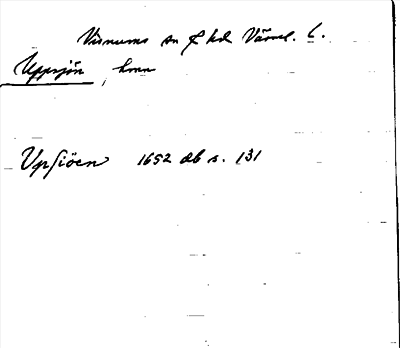 Visnums sn o hd Värml. l.
Uppsjön, hmn
Upsiöen 1652 db s. 131